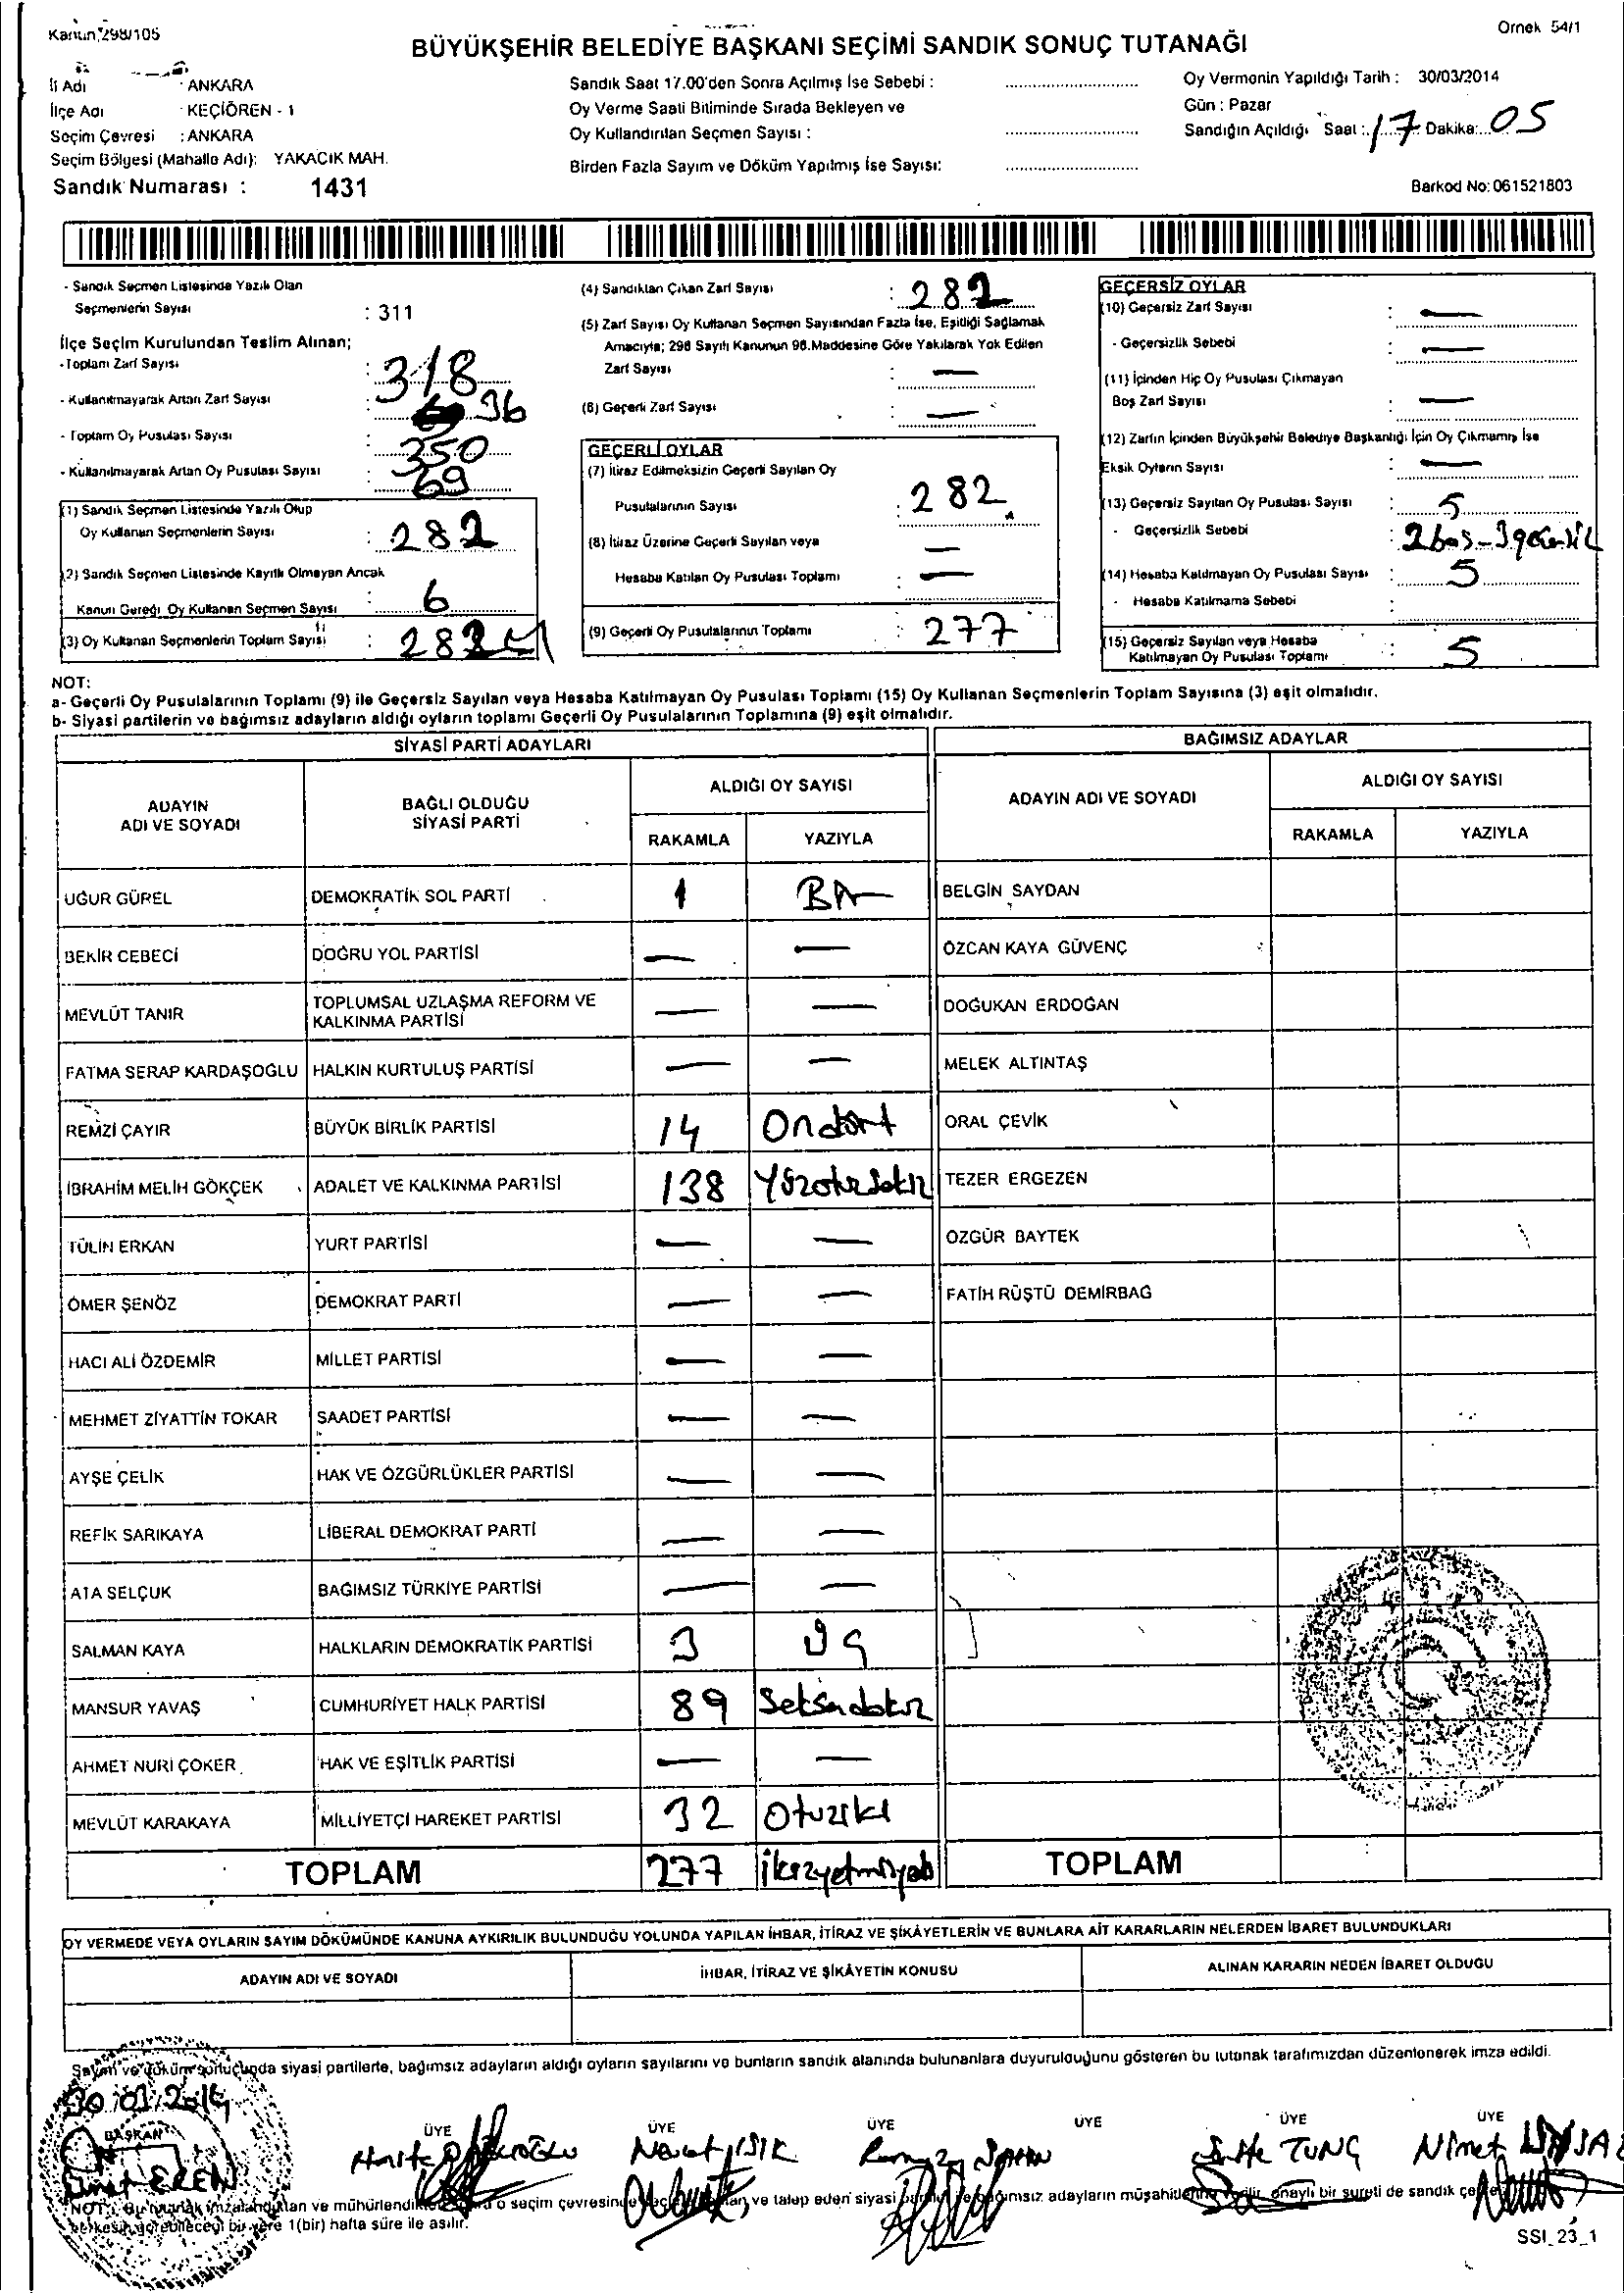 Kanun 298/105
Örnek 54/1
BÜYÜKŞEHİR BELEDİYE BAŞKANI SEÇİMİ SANDIK SONUÇ TUTANAĞI
İl Adı : ANKARA
İlçe Adı : KEÇİÖREN - 1
Seçim Çevresi : ANKARA
Seçim Bölgesi (Mahalle Adı): YAKACIK MAH.
Sandık Numarası : 1431
Sandık Saat 17.00'den Sonra Açılmış İse Sebebi :
Oy Verme Saati Bitiminde Sırada Bekleyen ve
Oy Kullandırılan Seçmen Sayısı :
Birden Fazla Sayım ve Döküm Yapılmış İse Sayısı:
Oy Vermenin Yapıldığı Tarih : 30/03/2014
Gün : Pazar
Sandığın Açıldığı Saat : 17 Dakika: 05
Barkod No: 061521803
- Sandık Seçmen Listesinde Yazılı Olan
Seçmenlerin Sayısı : 311
İlçe Seçim Kurulundan Teslim Alınan;
-Toplam Zarf Sayısı : 318
- Kullanılmayarak Artan Zarf Sayısı : 36
- Toplam Oy Pusulası Sayısı : 350
- Kullanılmayarak Artan Oy Pusulası Sayısı : 69
(1) Sandık Seçmen Listesinde Yazılı Olup
Oy Kullanan Seçmenlerin Sayısı : 282
(2) Sandık Seçmen Listesinde Kayıtlı Olmayan Ancak
Kanun Gereği Oy Kullanan Seçmen Sayısı : 6
(3) Oy Kullanan Seçmenlerin Toplam Sayısı : 282
(4) Sandıktan Çıkan Zarf Sayısı : 282
(5) Zarf Sayısı Oy Kullanan Seçmen Sayısından Fazla İse, Eşitliği Sağlamak
Amacıyla; 298 Sayılı Kanunun 98.Maddesine Göre Yakılarak Yok Edilen
Zarf Sayısı : —
(6) Geçerli Zarf Sayısı : —
GEÇERLİ OYLAR
(7) İtiraz Edilmeksizin Geçerli Sayılan Oy
Pusulalarının Sayısı : 282
(8) İtiraz Üzerine Geçerli Sayılan veya —
Hesaba Katılan Oy Pusulası Toplamı : —
(9) Geçerli Oy Pusulalarının Toplamı : 277
GEÇERSİZ OYLAR
(10) Geçersiz Zarf Sayısı : —
- Geçersizlik Sebebi : —
(11) İçinden Hiç Oy Pusulası Çıkmayan
Boş Zarf Sayısı : —
(12) Zarfın İçinden Büyükşehir Belediye Başkanlığı İçin Oy Çıkmamış İse
Eksik Oyların Sayısı : —
(13) Geçersiz Sayılan Oy Pusulası Sayısı : 5
- Geçersizlik Sebebi : 2 boş - 3
(14) Hesaba Katılmayan Oy Pusulası Sayısı : 5
- Hesaba Katılmama Sebebi :
(15) Geçersiz Sayılan veya Hesaba
Katılmayan Oy Pusulası Toplamı : 5
NOT:
a- Geçerli Oy Pusulalarının Toplamı (9) ile Geçersiz Sayılan veya Hesaba Katılmayan Oy Pusulası Toplamı (15) Oy Kullanan Seçmenlerin Toplam Sayısına (3) eşit olmalıdır.
b- Siyasi partilerin ve bağımsız adayların aldığı oyların toplamı Geçerli Oy Pusulalarının Toplamına (9) eşit olmalıdır.
SİYASİ PARTİ ADAYLARI
BAĞIMSIZ ADAYLAR
ADAYIN ADI VE SOYADI
BAĞLI OLDUĞU SİYASİ PARTİ
ALDIĞI OY SAYISI
RAKAMLA YAZIYLA
ADAYIN ADI VE SOYADI
ALDIĞI OY SAYISI
RAKAMLA YAZIYLA
UĞUR GÜREL DEMOKRATİK SOL PARTİ 1 Bir BELGİN SAYDAN
BEKİR CEBECİ DOĞRU YOL PARTİSİ — — ÖZCAN KAYA GÜVENÇ
MEVLÜT TANIR TOPLUMSAL UZLAŞMA REFORM VE KALKINMA PARTİSİ — — DOĞUKAN ERDOĞAN
FATMA SERAP KARDAŞOĞLU HALKIN KURTULUŞ PARTİSİ — — MELEK ALTINTAŞ
REMZİ ÇAYIR BÜYÜK BİRLİK PARTİSİ 14 Ondört ORAL ÇEVİK
İBRAHİM MELİH GÖKÇEK ADALET VE KALKINMA PARTİSİ 138 Yüzotuzsekiz TEZER ERGEZEN
TÜLİN ERKAN YURT PARTİSİ — — ÖZGÜR BAYTEK
ÖMER ŞENÖZ DEMOKRAT PARTİ — — FATİH RÜŞTÜ DEMİRBAĞ
HACI ALİ ÖZDEMİR MİLLET PARTİSİ — —
MEHMET ZİYATTİN TOKAR SAADET PARTİSİ — —
AYŞE ÇELİK HAK VE ÖZGÜRLÜKLER PARTİSİ — —
REFİK SARIKAYA LİBERAL DEMOKRAT PARTİ — —
ATA SELÇUK BAĞIMSIZ TÜRKİYE PARTİSİ — —
SALMAN KAYA HALKLARIN DEMOKRATİK PARTİSİ 3 üç
MANSUR YAVAŞ CUMHURİYET HALK PARTİSİ 89 Seksendokuz
AHMET NURİ ÇOKER HAK VE EŞİTLİK PARTİSİ — —
MEVLÜT KARAKAYA MİLLİYETÇİ HAREKET PARTİSİ 32 Otuziki
TOPLAM 277 ikiyüzyetmişyedi TOPLAM
OY VERMEDE VEYA OYLARIN SAYIM DÖKÜMÜNDE KANUNA AYKIRILIK BULUNDUĞU YOLUNDA YAPILAN İHBAR, İTİRAZ VE ŞİKÂYETLERİN VE BUNLARA AİT KARARLARIN NELERDEN İBARET BULUNDUKLARI
ADAYIN ADI VE SOYADI İHBAR, İTİRAZ VE ŞİKÂYETİN KONUSU ALINAN KARARIN NEDEN İBARET OLDUĞU
Sayım ve döküm sonucunda siyasi partilerle, bağımsız adayların aldığı oyların sayılarını ve bunların sandık alanında bulunanlara duyurulduğunu gösteren bu tutanak tarafımızdan düzenlenerek imza edildi.
30/03/2014
BAŞKAN ÜYE ÜYE ÜYE ÜYE ÜYE ÜYE
EREN Nevzat IŞIK Ramazan ŞAHİN TUNÇ Nimet
NOT: Bu tutanak imzalandıktan ve mühürlendikten sonra o seçim çevresinde ve talep eden siyasi bağımsız adayların müşahitlerine verilir, onaylı bir sureti de sandık çevresinde
herkesin görebileceği bir yere 1(bir) hafta süre ile asılır.
SSI_23_1